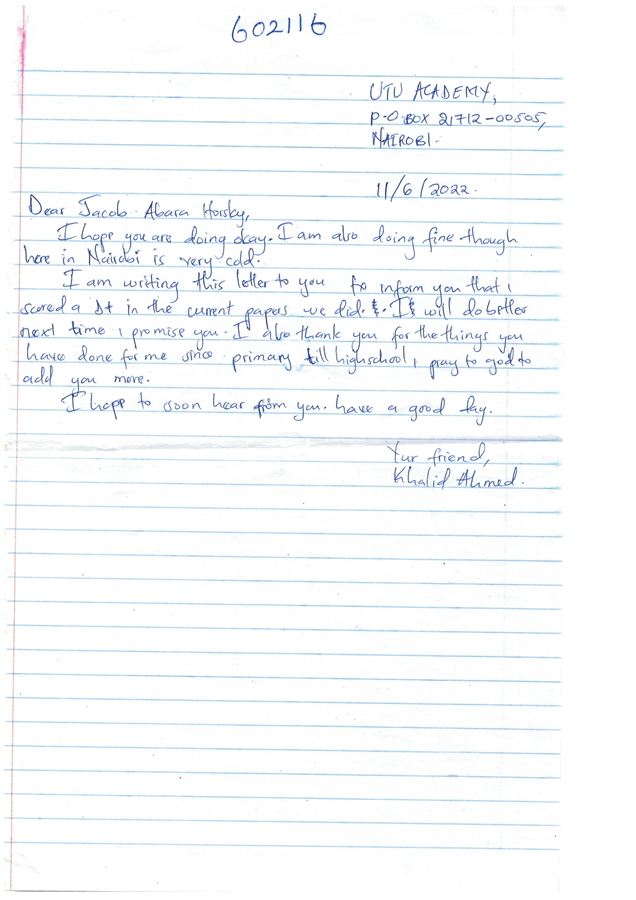 602116
UTU ACADEMY,
P.O.BOX 21712-00505,
NAIROBI.
11/6/2022.
Dear Jacob Abara Horsky,
I hope you are doing okay. I am also doing fine though
here in Nairobi is very cold.
I am writing this letter to you to inform you that i
scored a D+ in the current papers we did. I will do better
next time i promise you. I also thank you for the things you
have done for me since primary till highschool i pray to god to
add you more.
I hope to soon hear from you. have a good day.
Yur friend,
Khalid Ahmed.